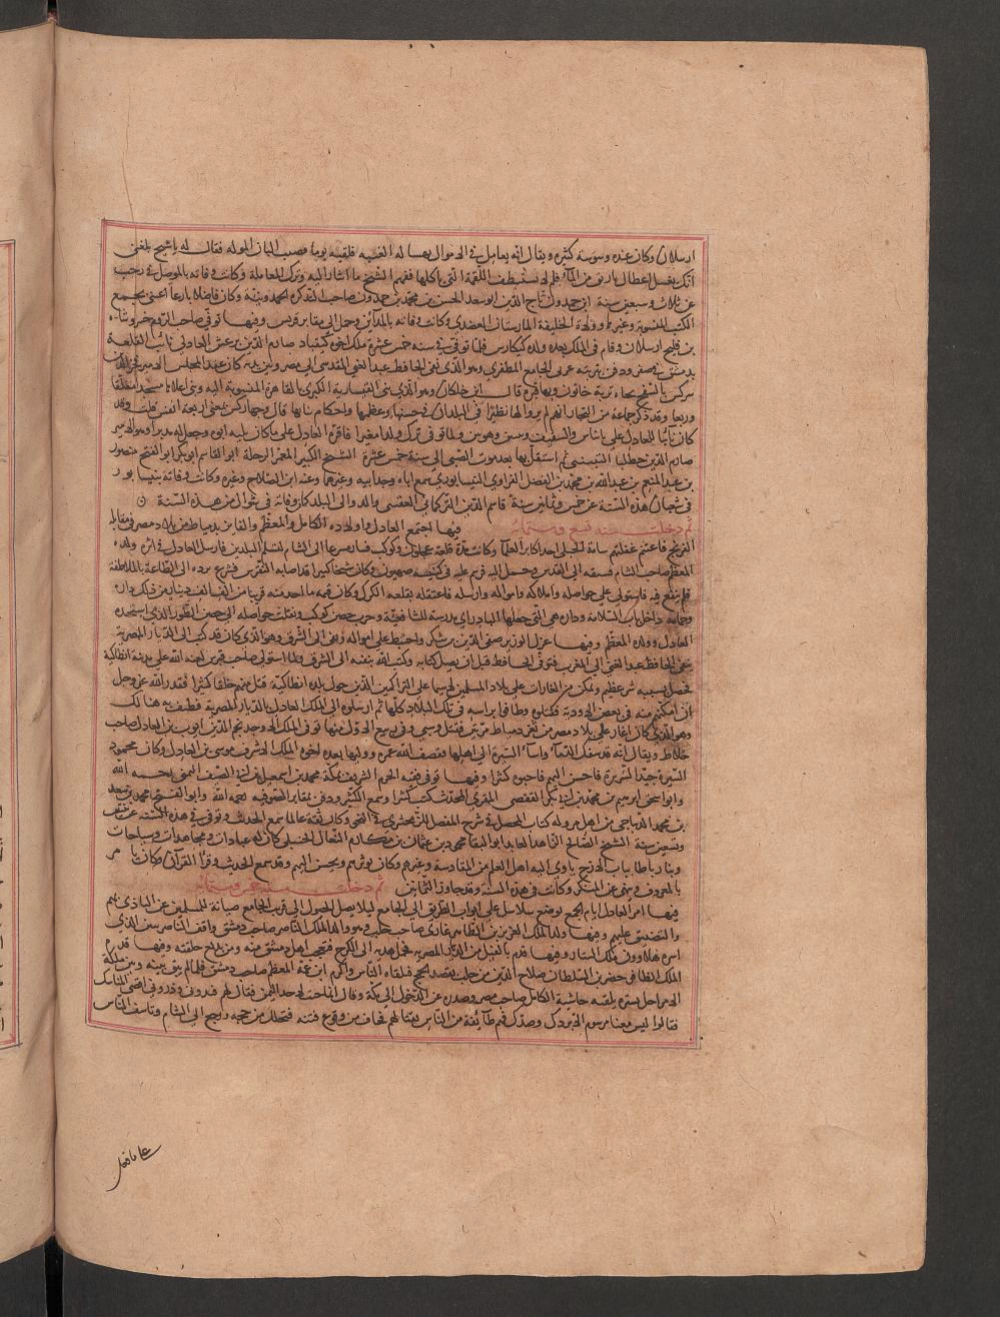 ارسلان وكان عنده وسوسة كثيرة ويقال انه يعامل في الاموال فلقيه يوما قضيب البان الموله فقال له يا شيخ بلغني
انك تغسل اعضاك باربعين من الماء فلم لا تستنظف اللقمة التي تاكلها ففهم الشيخ ما اشار اليه وترك المعاملة وكانت وفاته بالموصل في رجب
عن ثلاث وسبعين سنة ابن حمدون تاج الدين ابو سعد الحسن بن محمد بن حمدون صاحب التذكره وكان فاضلا بارعا اعتنى بجمع
الكتب المنسوبة وغيرها وولاه الخليفة المارستان العضدي وكانت وفاته بالمداين وحمل الى مقابر قريش وفيها توفي صاحب الروم خسرو شاه
بن قليج ارسلان وقام في الملك بعده ولده كيكاوس فلما توفي في سنه خمس عشرة ملك اخوه كيقباد صارم الدين برغش العادلي نائب القلعة
بدمشق في صفر ودفن بتربته غربي الجامع المظفري وهو الذي نفى الحافظ عبد الغني المقدسي الى مصر وبين يديه كان عقد المجلس
تربة خاتون وبها قبره قال ابن خلكان وهو الذي بنى القيسارية الكبرى بالقاهرة المنسوبة اليه وبنى اعلاها مسجدا معلقا
وربعا وقد ذكر جماعة من التجار انهم لم يروا لها نظيرا في البلدان في حسنها وعظمها واحكام بنايها قال وجهاركس بمعنى اربعة انفس قلت وقد
كان نائبا للعادل على بانياس والشقيف وتبنين وهونين ولما توفي ترك ولدا صغيرا فاقره العادل على ما كان يليه ابوه وجعل له مدبرا وهو الامير
صارم الدين خطلبا التبنيني ثم استقل بها بعد موت الصبي الى سنة خمس عشرة الشيخ الكبير المعمر الرحلة ابو القاسم ابو بكر ابو الفتح منصور
بن عبد المنعم بن عبد الله بن محمد بن الفضل الفراوي النيسابوري سمع اباه وجد ابيه وغيرهما وعنه ابن الصلاح وغيره وكانت وفاته بنيسابور
في شعبان هذه السنة عن خمس وثمانين سنة قاسم الدين التركماني العقيبي والد والي البلد كان وفاته في شوال من هذه السنة
ثم دخلت سنة تسع وستمائة فيها اجتمع العادل واولاده الكامل والمعظم والفايز بدمياط من بلاد مصر في مقابله
الفرنج فاغتنم غيبتهم سامة الجبلي احد اكابر الامرا وكانت بيده قلعة عجلون وكوكب فسار مسرعا الى الشام ليتسلم البلدين فارسل العادل في اثره ولده
المعظم صاحب الشام فسبقه الى القدس وحمل عليه فرسم عليه في كنيسة صهيون وكان شيخا كبيرا قد اصابه النقرس فشرع يرده الى الطاعة بالملاطفة
فلم ينفع فيه فاستولى على حواصله واملاكه وامواله وارسله فاعتقله بقلعه الكرك وكان قيمة ما اخذ منه قريبا من الف الف دينار من ذلك داره
وحمامه داخل باب السلامة وداره هي التي جعلها البادراي مدرسة للشافعية وخرب حصن كوكب ونقلت حواصله الى حصن الطور الذي استجده
العادل وولده المعظم وفيها عزل الوزير صفي الدين بن شكر واحتيط على امواله ونفي الى الشرق وهو الذي كان قد كتب الى الديار المصرية
بنفي الحافظ عبد الغني الى المغرب فتوفي الحافظ قبل ان يصل كتابه وكتب الله بنفيه الى الشرق ولما استولى صاحب قبرس لعنه الله على مدينة انطاكية
حصل بسببه شر عظيم وتمكن من الغارات على بلاد المسلمين لا سيما على التراكمين الذين حول بلده انطاكية قتل منهم خلقا كثيرا فقدر الله عز وجل
ان امكنهم منه في بعض الاودية فقتلوه وطافوا براسه في تلك البلاد كلها ثم ارسلوه الى الملك العادل بالديار المصرية فطيف به هنالك
وهو الذي كان اغار على بلاد مصر من ثغر دمياط مرتين فقتل وسبى وفي ربيع الاول منها توفي الملك الاوحد نجم الدين ايوب بن العادل صاحب
خلاط ويقال انه قد سفك الدماء واساء السيرة الى اهلها فقصف الله عمره ووليها بعده اخوه الملك الاشرف موسى بن العادل وكان محمود
السيرة جيد السريرة فاحسن اليهم فاحبوه كثيرا وفيها توفي فقيه الحرم الشريف بمكة محمد بن اسمعيل بن ابي الصيف اليمني رحمه الله
وابو اسحق ابرهيم بن محمد بن ابي بكر القفصي المقرئ المحدث كتب كثيرا وسمع الكثير ودفن بمقابر الصوفيه رحمه الله وابو الفتح محمد بن سعد
بن محمد الديباجي من اهل مرو له كتاب المحصل في شرح المفصل للزمخشري في النحو وكان ثقة عالما سمع الحديث وتوفي في هذه السنة عن ثنتين
وتسعين سنة الشيخ الصالح الزاهد العابد ابو البقا محمود بن عثمان بن مكارم النعال الحنبلي كان له عبادات ومجاهدات وسياحات
وبنا رباطا بباب الازج ياوي اليه اهل العلم من المقادسة وغيرهم وكان يوثرهم ويحسن اليهم وقد سمع الحديث وقرا القرآن وكان يامر
بالمعروف وينهى عن المنكر وكانت في هذه السنة وقد جاوز الثمانين ثم دخلت سنة عشر وستمائة
فيها امر العادل ايام الجمع بوضع سلاسل على ابواب الطرق الى الجامع ليلا يصل الخيول الى قرب الجامع صيانة للمسلمين عن التاذي بهم
والتضييق عليهم وفيها ولد الملك العزيز بن الظاهر غازي صاحب حلب وهو والد الملك الناصر صاحب دمشق واقف الناصريتين الذي
اسره هلاوون ملك التتار وفيها قدم بالفيل من الديار المصريه فحمل هدية الى الكرج فتعجب اهل دمشق منه ومن بديع خلقته وفيها قدم
الملك الظافر خضر بن السلطان صلاح الدين من حلب بقصد الحج فتلقاه الناس واكرمه ابن عمه المعظم صاحب دمشق فلما لم يبق بينه وبين مكة
الا مراحل يسيره تلقته حاشية الكامل صاحب مصر وصدوه عن الدخول الى مكة وقالوا انما جئت لاخذ اليمن فقال لهم قيدوني وذروني اقضي المناسك
فقالوا ليس معنا مرسوم الا بردك وصدك فهم طايفة من الناس بقتالهم فخاف من وقوع فتنة فتحلل من حجه ورجع الى الشام وتاسف الناس
على ما فعل